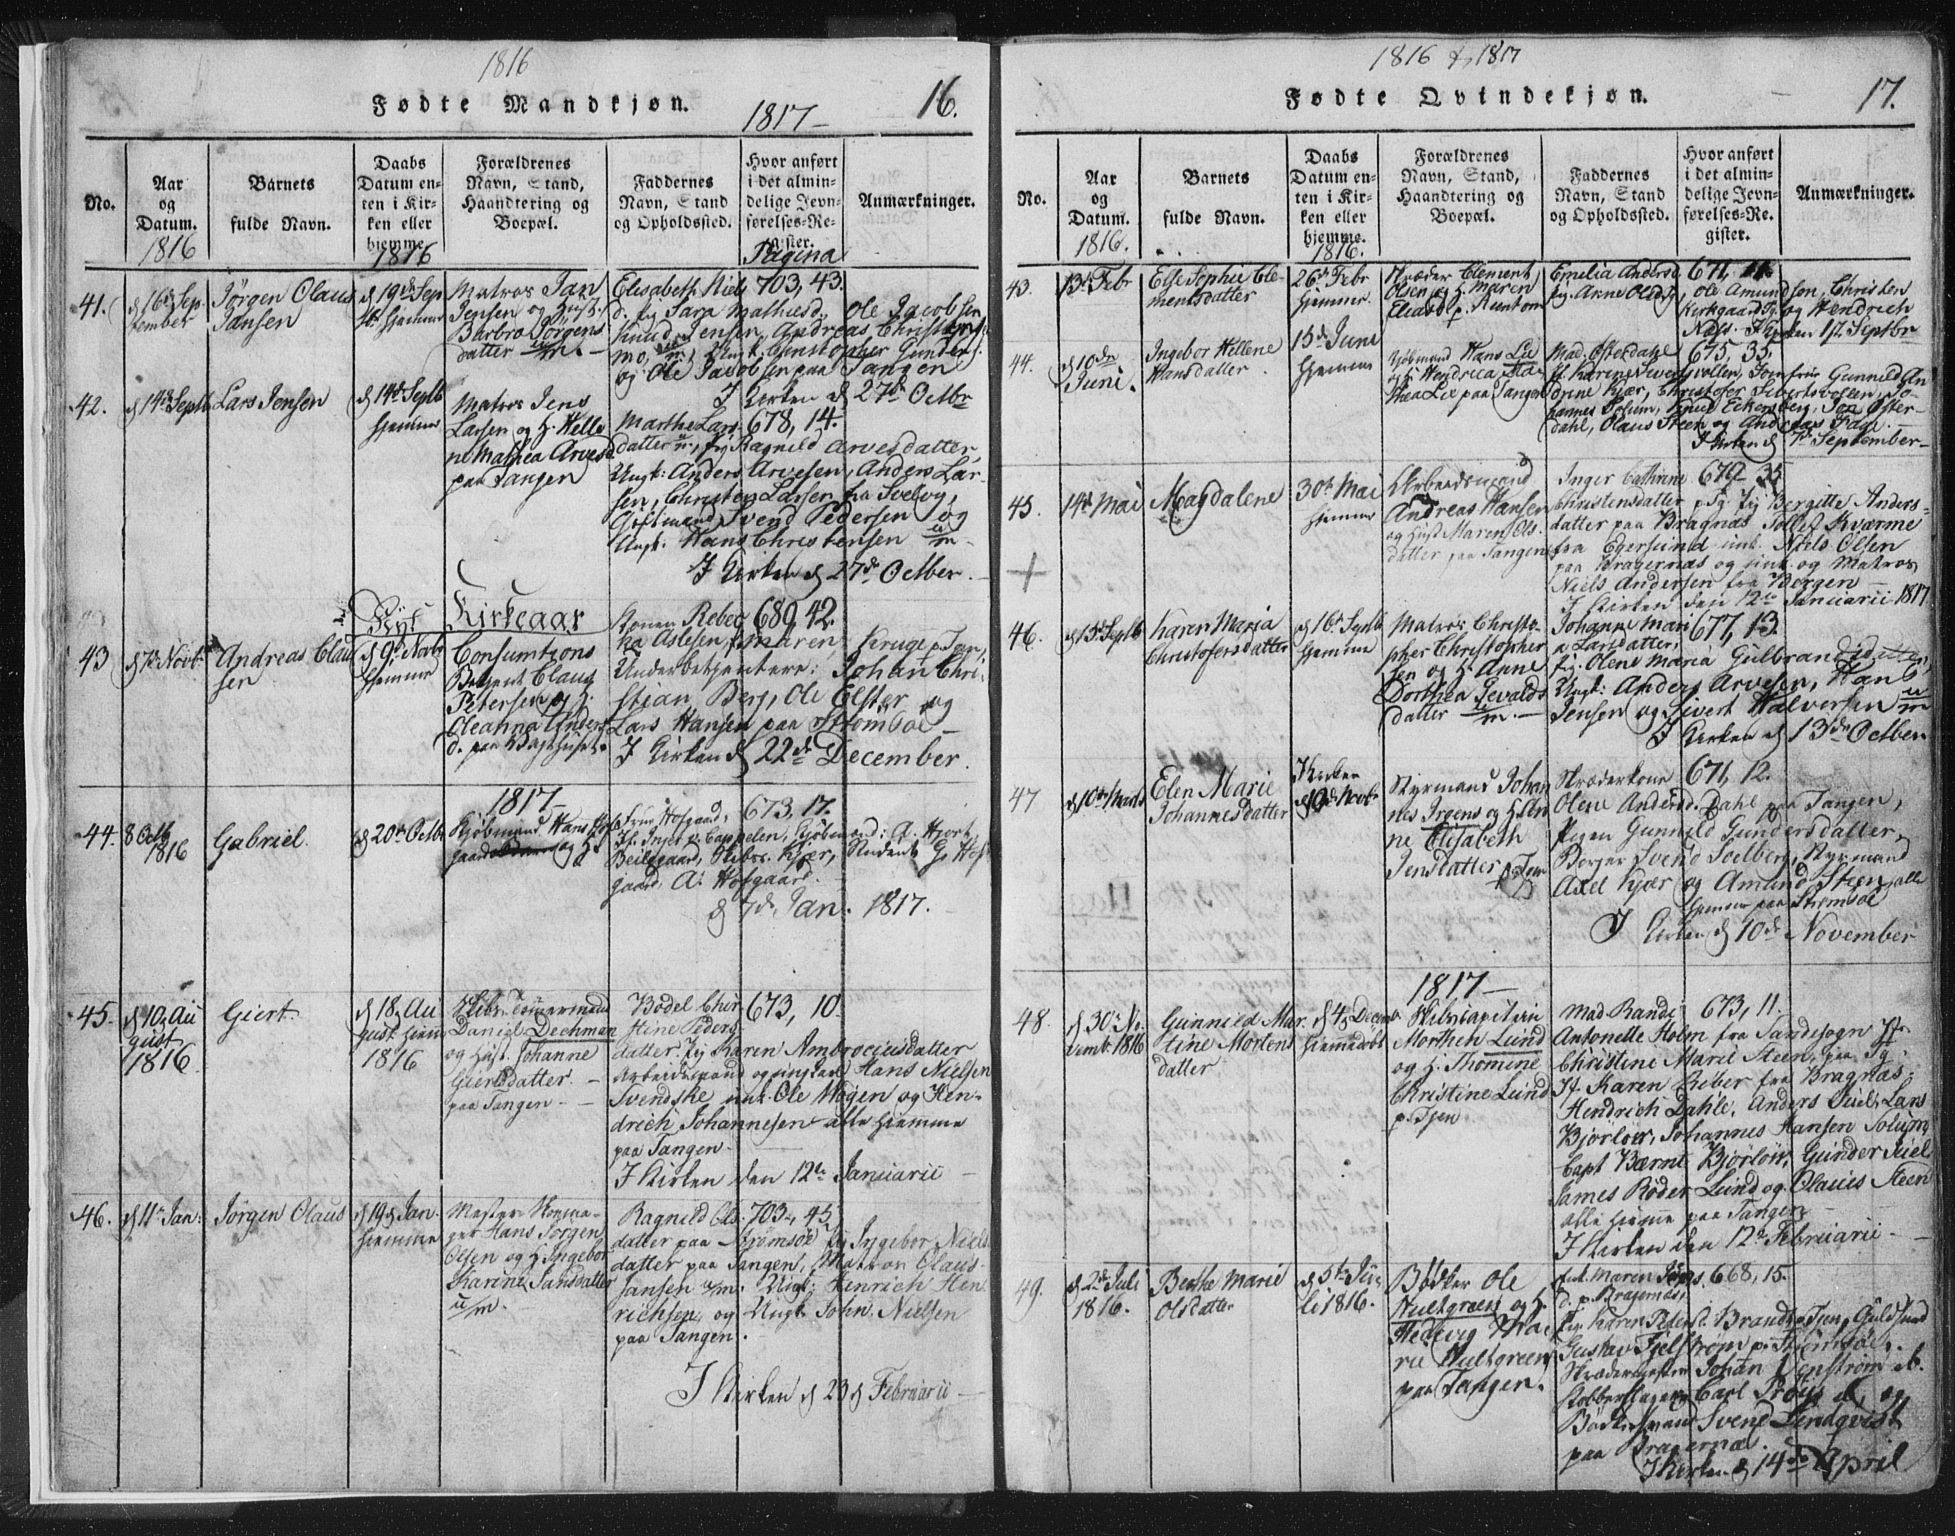 1816
Fødte Mandkjøn.
1817
16.
No.
Aar
og
Datum.
1816
Barnets
fulde Navn.
Daabs
Datum en-
ten i Kir-
ken eller
hjemme.
1816
Forældrenes
Navn, Stand,
Haandtering og
Boepæl.
Faddernes
Navn, Stand
og Opholdssted.
Hvor anført
i det almin-
delige Jevn-
førelses-Re-
gister.
Pagina
Anmærkninger.
41.
d 16de Sep-
tember
Jørgen Olaus
Jansen
d 19de Sep
hjemme
Matros Jan
Jensen og Hust.
Barbro Jørgens
datter
Elisabeth Niels 703, 43.
d. Sara Mathiesd., Ole Jacobsen
Knud Jensen, Andreas Christens
Ungk. Christopher Gunders
og Ole Jacobsen paa Tangen
I Kirken d 27de Octbr
42.
d 14de Septb
Lars Jensen
d 14de Septb
hjemme
Matros Jens
Larsen og H. Helle
ne Mathea Arvesd
paa Tangen
Marthe Lars 678, 14.
datter, Ragnild Arvesdatter,
Ungk: Anders Arvesen, Anders Lar-
sen, Christen Larsen fra Svelvig,
Giftmand Svend Pedersen og
Ungk. Hans Christensen
I Kirken d 27de Octber.
43
d 7de Novbr
Andreas Clau
sen
d 9de Novbr
hjemme
Nyt Kirkeaar
Consumtions
Betjent Claus
Petersen og H.
Oleanna Anders
d. paa
Konen Rebec 689, 42.
ka Aslesen, Maren Kruge p. Tan,
Underbetjentere: Johan Chri-
stian Berg, Ole Elster og
Lars Hansen paa Strømsøe
I Kirken d 22de December.
1817
44.
8 Octb
1816
Gabriel.
d 20de Octbr
Kjøbmand Hans Hof
gaard og H.
Frue Hofgaard, 673, 17.
Inger v. Cappelen, Kjøbmænd: A. Hjort,
Beilegaard, Kjær, Student G. Hof
gaard, A. Hofgaard.
d 7de Jan. 1817.
45.
d 10 Au
gust
1816
Giert.
d 18 Au
gust hiem
1816
Skibs Tømmermand
Daniel Dechman
og Hust. Johanne
Giertsdatter
paa Tangen
Bodel Chri 673, 10.
stine Peders
datter. Karen Ambrociusdatter
Arbeidsmand Hans Nielsen
Svendske Ole Mogen og Hen-
drich Johannesen alle hiemme
paa Tangen
I Kirken den 12te Januarii
46.
d 11te Jan:
Jørgen Olaus
d 19 Jan.
hiemme
Hans Jørgen
Olsen og H. Ingebor
Karine Jansdatter
Ragnild Ols- 703, 45
datter paa Strømsøe Ingebor Niels
datter paa Tangen, Matros Olaus
Jansen Ungk: Henrich Hen
richsen, og Ungk John Nielsen
paa Tangen.
I Kirken d 23 Februarii
1816 & 1817
Fødte Qvindekjøn.
17.
No.
Aar
og
Datum.
1816.
Barnets
fulde Navn.
Daabs
Datum en-
ten i Kir-
ken eller
hjemme.
1816.
Forældrenes
Navn, Stand,
Haandtering og
Boepæl.
Faddernes
Navn, Stand
og Opholdssted.
Hvor anført
i det almin-
delige Jevn-
førelses-Re-
gister.
Anmærkninger.
43.
13de Febr
Else Sophie Cle-
mentsdatter
26de Febr
hjemme
Skræder Clement
Olsen og H. Maren
Eliasd. p. Runtom
Emelia Andersd. 671, 11.
Anne Olsd, Ole Amundsen, Christen
Kirkgaard og Hendrich
Nils. I Kirken 1ste Septbr
44.
d 10de
Juni.
Ingebor Hellene
Hansdatter
15de Juni
hjemme
Kjøbmand Hans Lie
Hendrica
Lie paa Tangen
Mad. Østerdahl 675, 35.
Karine Sivertsvollen, Jomfrue Gunnild An
onne Kjær, Christofer Sivertsvolen, Jo-
hannes Solum, Knud Eckersberg, Jon Øster-
dahl, Olaus Steen og Andreas Fage.
I Kirken d 7de September
45.
14de Mai
Magdalene
30te Mai
hjemme
Arbeidsmand
Andreas Hansen
og Hust Maren Ols-
datter paa Tangen
Inger Cathrine 679, 35
Christensdatter p. Tg. Bergitte Anders-
datter paa Bragnæs Tollef Kværme
fra Egersund Niels Olsen
paa Bragernæs og Matros
Niels Andersen fra Bergen
I Kirken den 12te Januarii 1817
46.
d 13de Septb
Karen Maria
Christofersdatter
d 16de Septb
hjemme
Matros Christo-
pher Christopher
sen og H. Anne
Dorthea Sevalds
datter
Johanne Mari 677, 13.
a Larsdatter,
Olene Maria Gulbrandsdatter,
Ungk: Anders Arvesen, Hans
Jensen og Sivert Halversen
I Kirken d 13de Octber
47
d 10de Marts
Elen Marie
Johannesdatter
I Kirken
d 10de Novbr
Styrmand Johan
nes Irgens og H. An
ne Elisabeth
Jensdatter p. Tan
Skræderkone 671, 12.
Olene Andersd. Dahl paa Tangen,
Pigen Gunnild Gundersdatter,
Borger Svend Solberg, Styrmand
Axel Kjær og Amund Steen, alle
hjemme paa Strømsøe
I Kirken d 10de November
1817
48.
d 30te No-
vemb. 1816
Gunnild Mar-
tine Mortens
datter
d 4 Decem
hiemmedøbt
Skibscapitain
Morthen Lund
og H. Thomine
Christine Lund
p. Tgen
Mad Randi 673, 11.
Antonette Holm fra Sandesogn
Christine Marie Steen, paa Tg:
Karen Riber fra Bragnæs;
Hendrich Dahle, Anders Juel, Lars
Bjørløw, Johannes Hansen Solum,
Capt Bærnt Bjorløw, Gunder Juel
James Røder Lund og Olaus Steen
alle hiemme paa Tangen
I Kirken den 12te Februarii
49.
d 2de Juli
1816.
Berthe Marie
Olsdatter
d 5te Ju-
li 1816.
Bødker Ole
Hultgreen og H.
Hedevig Ma-
rie Hultgreen
paa Tangen.
Maren Jans 668, 15.
d. p. Bragernæs,
Karen Petersd. Brandt p. Tgen, Guldsmed
Gustav Fjelstrøm p. Strømsøe,
Skrædermester Johan Wenstrøm
Kobberslager Carl
Bødkersvend Svend Lindqvist
paa Bragernæs.
I Kirken d 14de April